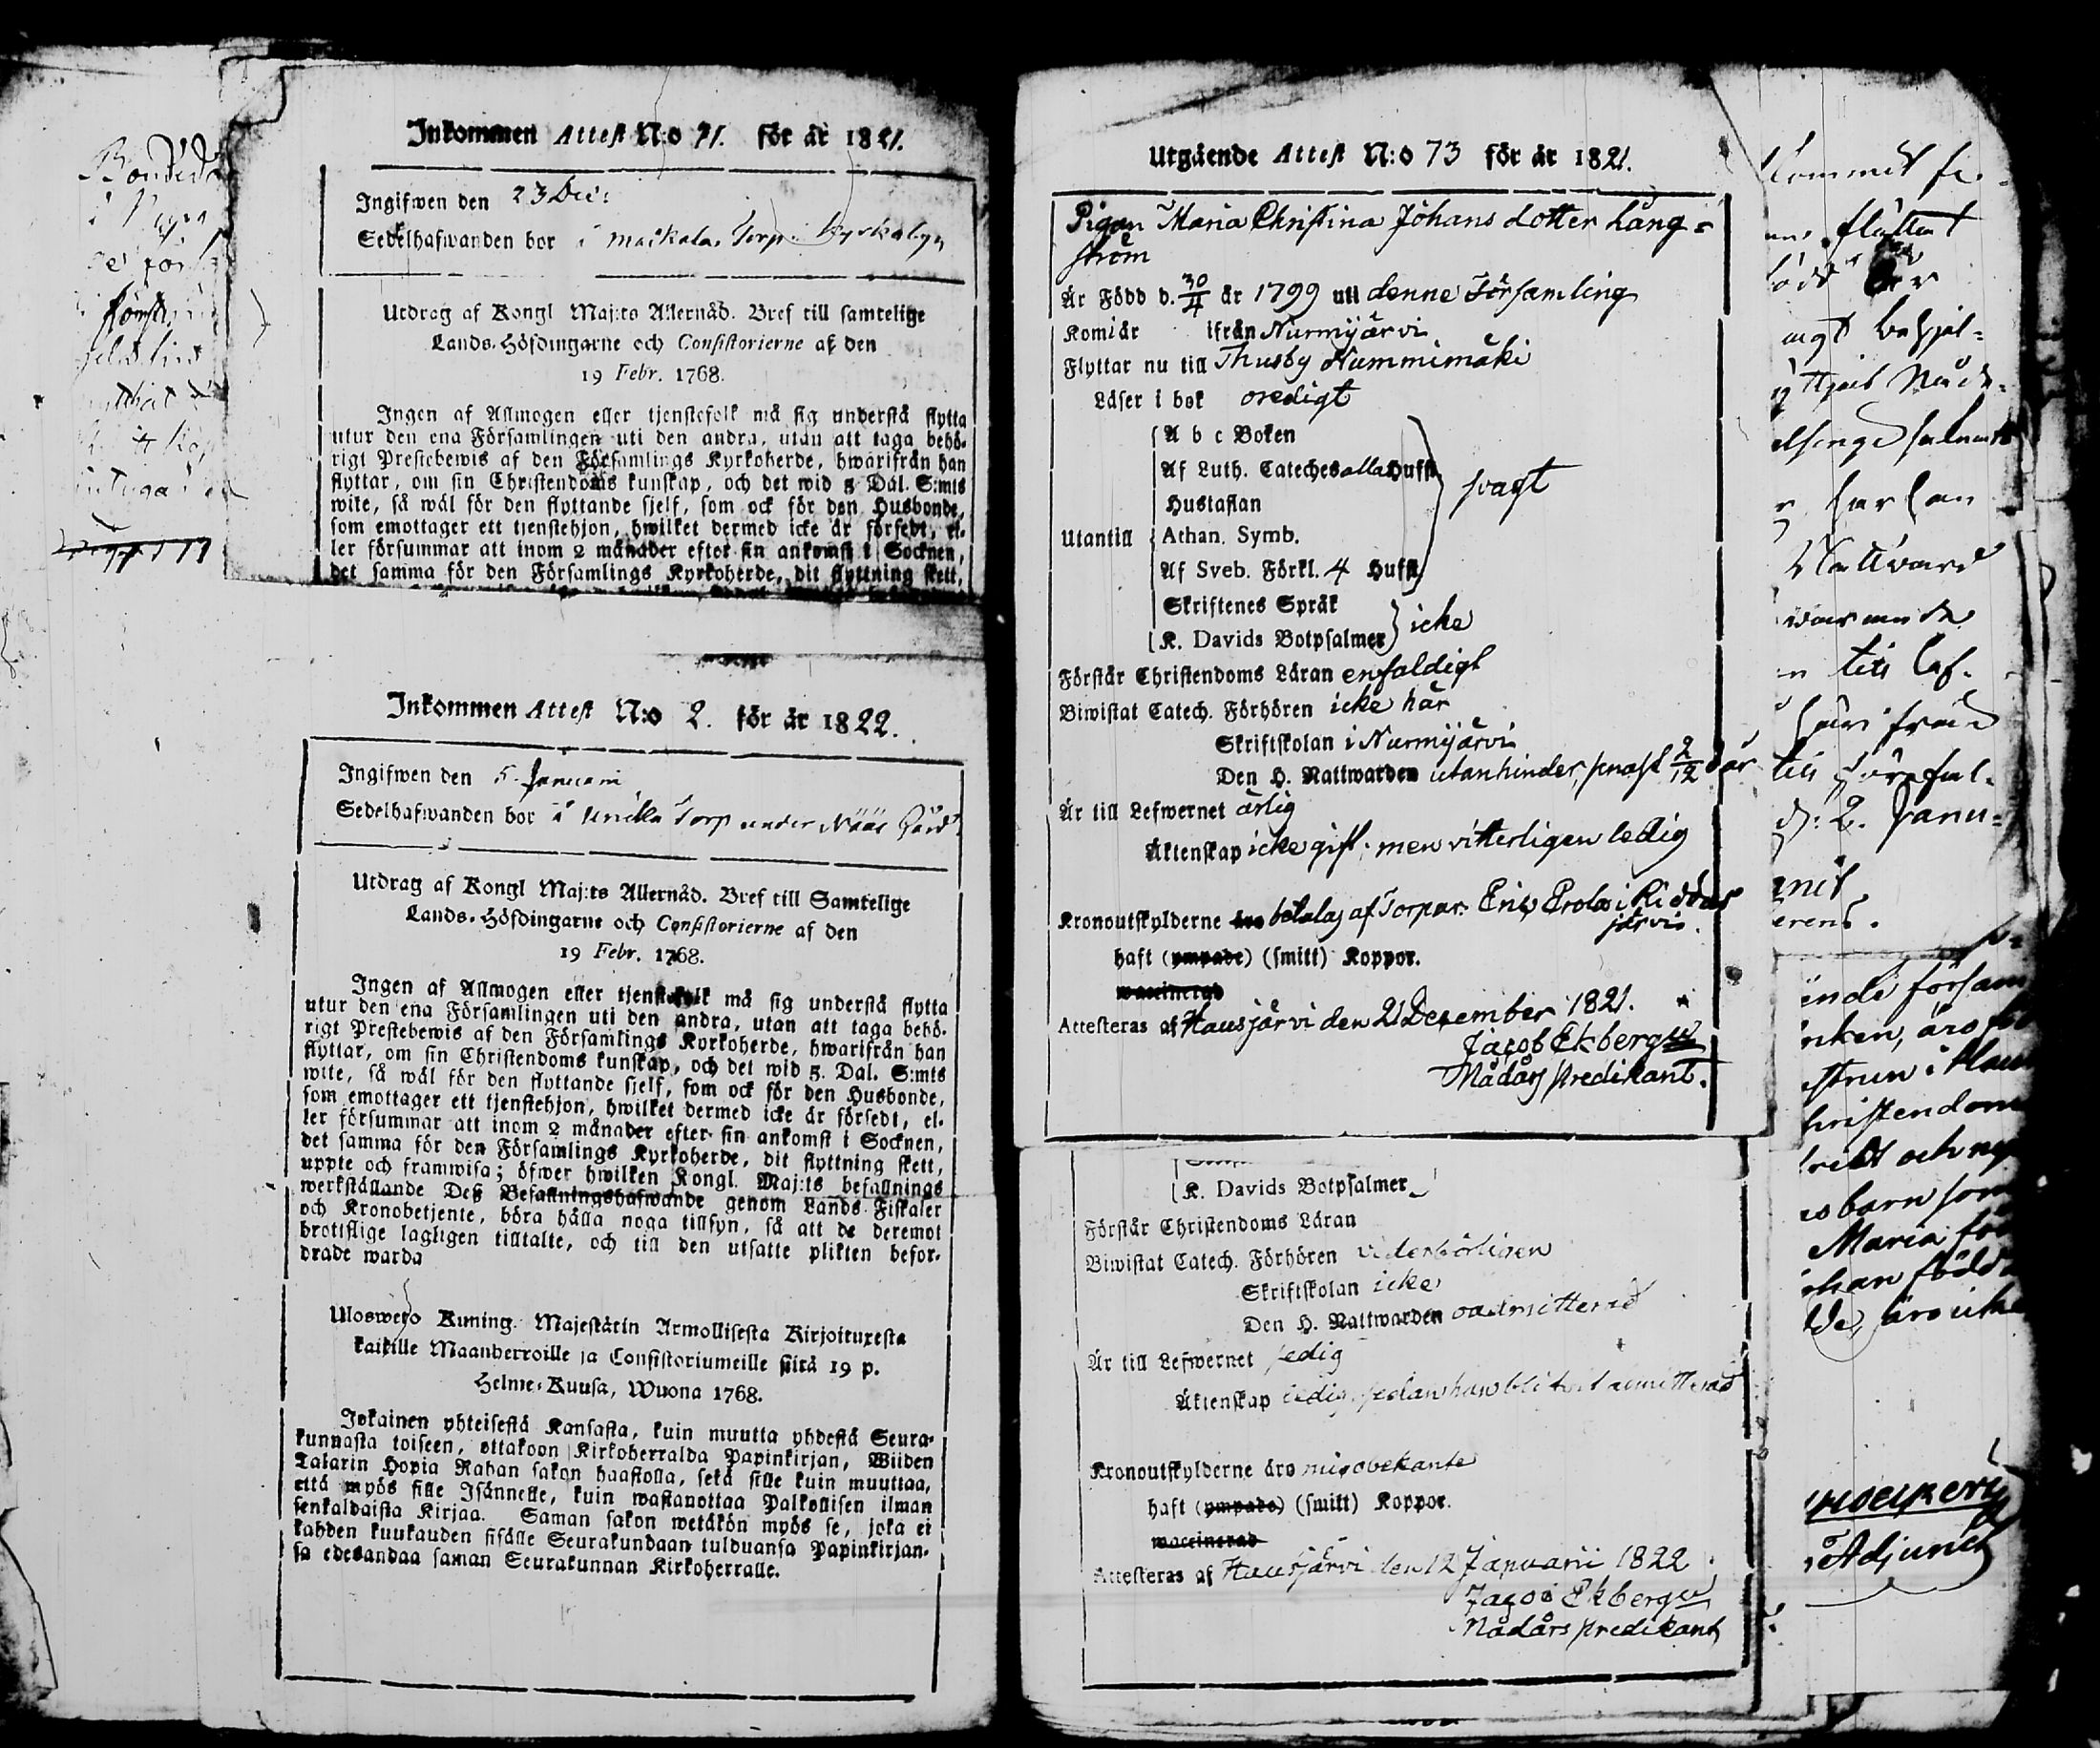 Inkommen Attest N:o 71. för år 1821.
Ingifwen den 23 Dec:
Sedelhafwanden bor i Torp
Utdrag af Kongl Maj:ts Allernåd. Bref till samtelige
Lands-Höfdingarne och Consistorierne af den
19 Febr. 1768.
Ingen af Allmogen eller tjenstefolk må sig understå flytta
utur den ena Församlingen uti den andra, utan att taga behö-
rigt Prestebewis af den Församlings Kyrkoherde, hwarifrån han
flyttar, om sin Christendoms kunskap, och det wid 5 Dal. S:mts
wite, så wäl för den flyttande sjelf, som ock för den Husbonde,
som emottager ett tjenstehjon, hwilket dermed icke är försedt, el-
ler försummar att inom 2 månader efter sin ankomst i Socknen,
det samma för den Församlings Kyrkoherde, dit flyttning skett,
Inkommen Attest N:o 2. för år 1822.
Ingifwen den 5. Januarii
Sedelhafwanden bor i Torp under Nääs Gård
Utdrag af Kongl Maj:ts Allernåd. Bref till Samtelige
Lands-Höfdingarne och Consistorierne af den
19 Febr. 1768.
Ingen af Allmogen eller tjenstefolk må sig understå flytta
utur den ena Församlingen uti den andra, utan att taga behö-
rigt Prestebewis af den Församlings Kyrkoherde, hwarifrån han
flyttar, om sin Christendoms kunskap, och det wid 5. Dal. S:mts
wite, så wäl för den flyttande sjelf, som ock för den Husbonde,
som emottager ett tjenstehjon, hwilket dermed icke är försedt, el-
ler försummar att inom 2 månader efter sin ankomst i Socknen,
det samma för den Församlings Kyrkoherde, dit flyttning skett,
uppte och framwisa; öfwer hwilken Kongl. Maj:ts befallnings
werkställande Deß Befallningshafwande genom Lands-Fiskaler
och Kronobetjente, böra hålla noga tillsyn, så att de deremot
brottslige lagligen tilltalte, och till den utsatte plikten befor-
drade warda
Uloswero Kuning. Majestätin Armollisesta Kirjoituxesta
kaikille Maanherroille ja Consistoriumeille siitä 19 p.
Helme-Kuusa, Wuona 1768.
Jokainen yhteisestä Kansasta, kuin muutta yhdestä Seura-
kunnasta toiseen, ottakoon Kirkoherralda Papinkirjan, Wiiden
Talarin Hopia Rahan sakon haastolla, sekä sille kuin muuttaa,
että myös sille Isännelle, kuin wastanottaa Palkollisen ilman
senkaldaista Kirjaa. Saman sakon wetäkön myös se, joka ei
kahden kuukauden sisälle Seurakundaan tulduansa Papinkirjan-
sa edesandaa saman Seurakunnan Kirkoherralle.
Utgående Attest N:o 73 för år 1821.
Pigan Maria Christina Johans dotter Lång=
ström
Är Född d. 30/4 år 1799 uti denne Församling
Komiär ifrån Nurmijärvi
Flyttar nu till Thusby Nummimäki
Läser i bok oredigt
A b c Boken
Af Luth. Cateches alla Hufst.
Hustaflan
svagt
Utantill
Athan. Symb.
Af Sveb. Förkl. 4 Hufst.
Skriftenes Språk
K. Davids Botpsalmer
icke
Förstår Christendoms Läran enfaldigt
Biwistat Catech. Förhören icke här
Skriftskolan i Nurmijärvi
Den H. Nattwarden utan hinder, senast 2/12 d. år
Är till Lefwernet ärlig
Äktenskap icke gift, men vitterligen ledig
Kronoutskylderne äro betalas af Torpar. Eric Erola i Riddas
järvi.
haft (ympade) (smitt) Koppor.
waccinerad
Attesteras af Hausjärvi den 21 December 1821.
Jacob Ekberg
Nådårs predikant.
K. Davids Botpsalmer
Förstår Christendoms Läran
Biwistat Catech. Förhören vederbörligen
Skriftskolan icke
Den H. Nattwarden oadmitterad
Är till Lefwernet sedig
Äktenskap ledig, sedan han blifvit admitterad
Kronoutskylderne äro mig obekante
haft (ympade) (smitt) Koppor.
waccinerad
Attesteras af Hausjärvi den 12 Januarii 1822
Jacob Ekberg
Nådårs predikant
flyttat
Nattvard
d: 2. Janu=
barn som
Maria
Adjunct